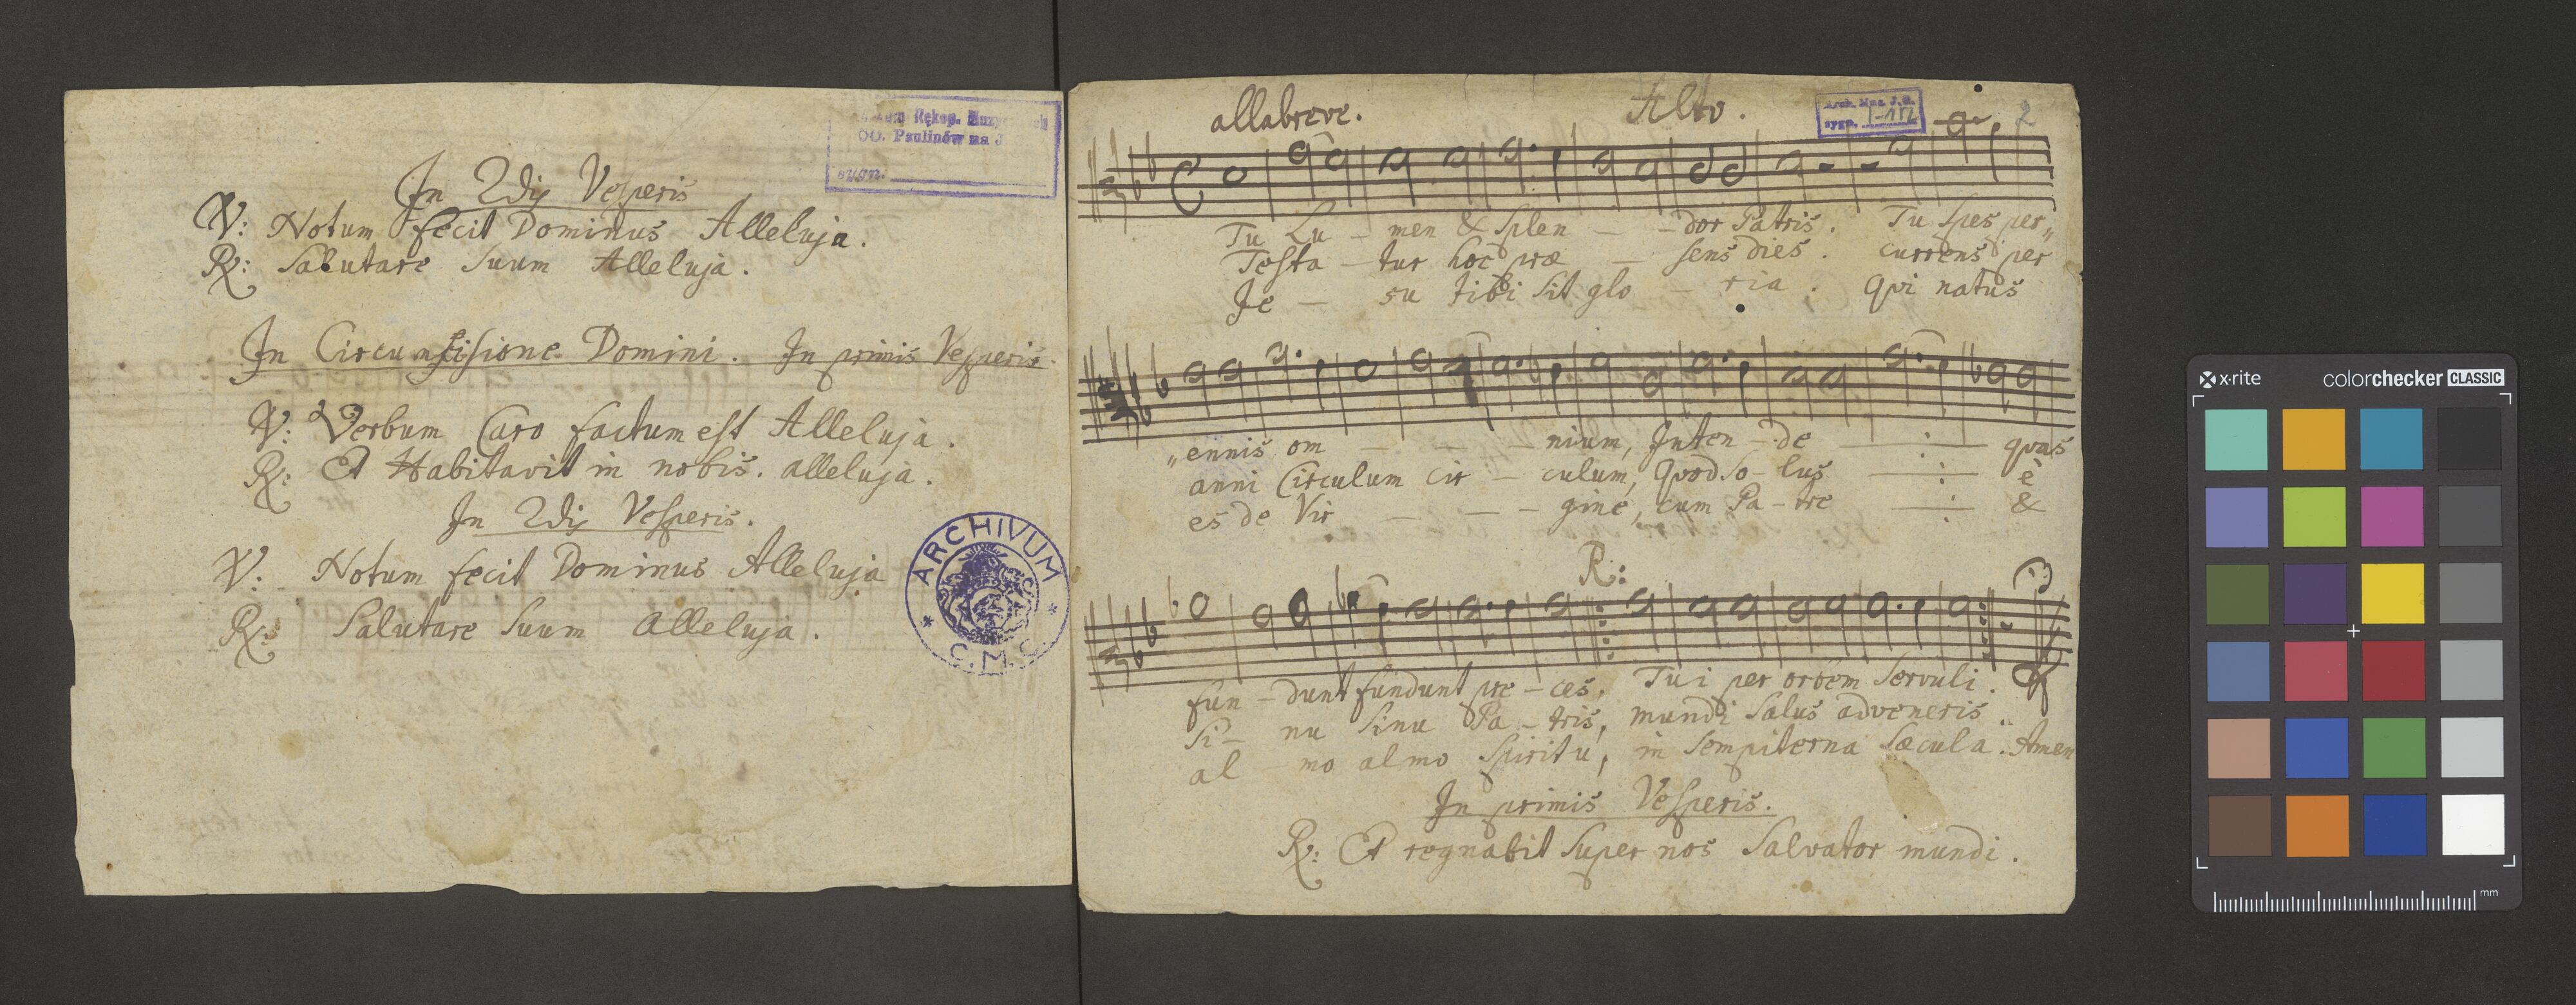 In 2dis Vesperis
V: Notum fecit Dominus Alleluja.
R: Salutare Suum Alleluja.
In Circumcisione Domini. In primis Vesperis.
V: Verbum Caro factum est Alleluja.
R: Et Habitavit in nobis. alleluja.
In 2dis Vesperis.
V: Notum fecit Dominus Alleluja
R: Salutare Suum Alleluja.
Rękop.
OO. Paulinów na J
sygn.
ARCHIVUM
C.M.C.
allabreve. Alto. 2
sygn. I-172
Tu Lu - men & Splen - - dor Patris. Tu spes per„
Testa - tur hoc præ - sens dies. currens per
Je - su tibi sit glo - ria. Qvi natus
„ennis om - - - - nium, Inten - de — : — qvas
anni Circulum cir - culum, Qvod so - lus — : — è
es de Vir - - - gine, cum Pa - tre — : — &
R:
fun - dunt fundunt pre - ces, Tui per orbem Servuli.
Si - nu Sinu Pa - tris, mundi Salus adveneris.
al - mo almo Spiritu, in Sempiterna Sæcula. Amen
In primis Vesperis.
R: Et regnabit Super nos Salvator mundi.
x-rite
colorchecker CLASSIC
mm